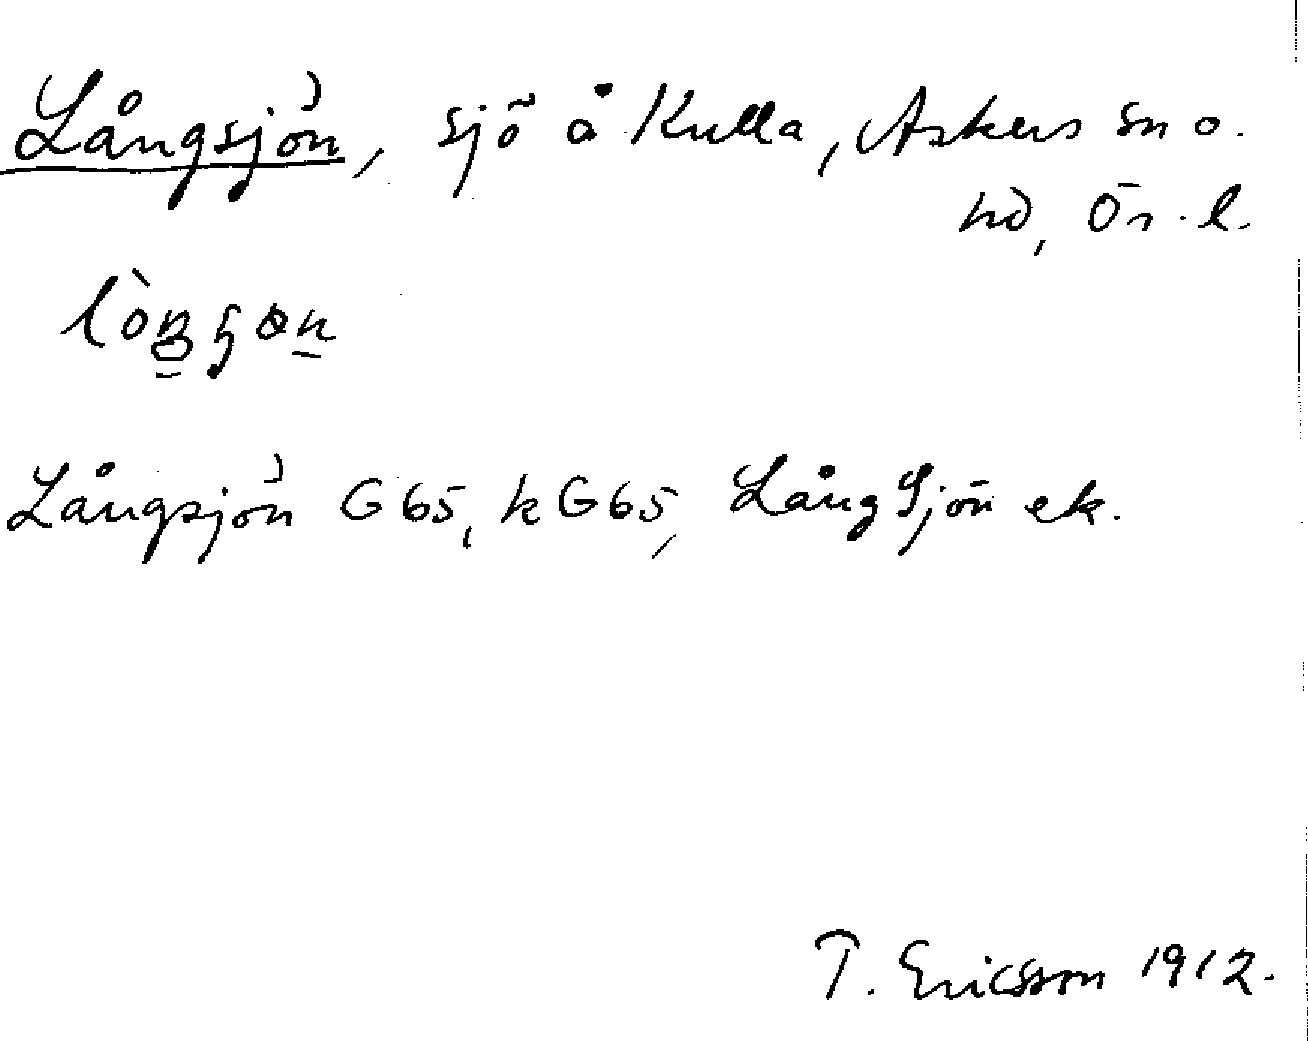 Långsjön, sjö å Kulla, Askers sn o.
hd, Ör. l.
Långsjön G 65, k G 65, Lång Sjön ek.
T. Ericsson 1912.